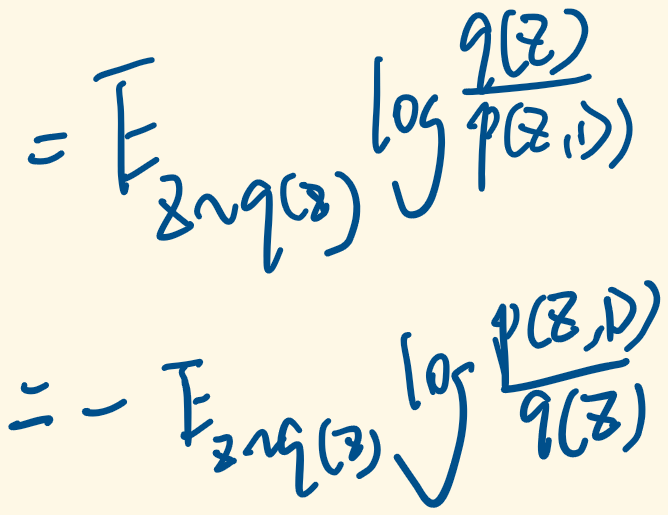 = E_{z~q(z)} log q(z)/p(z,D)
= - E_{z~q(z)} log p(z,D)/q(z)